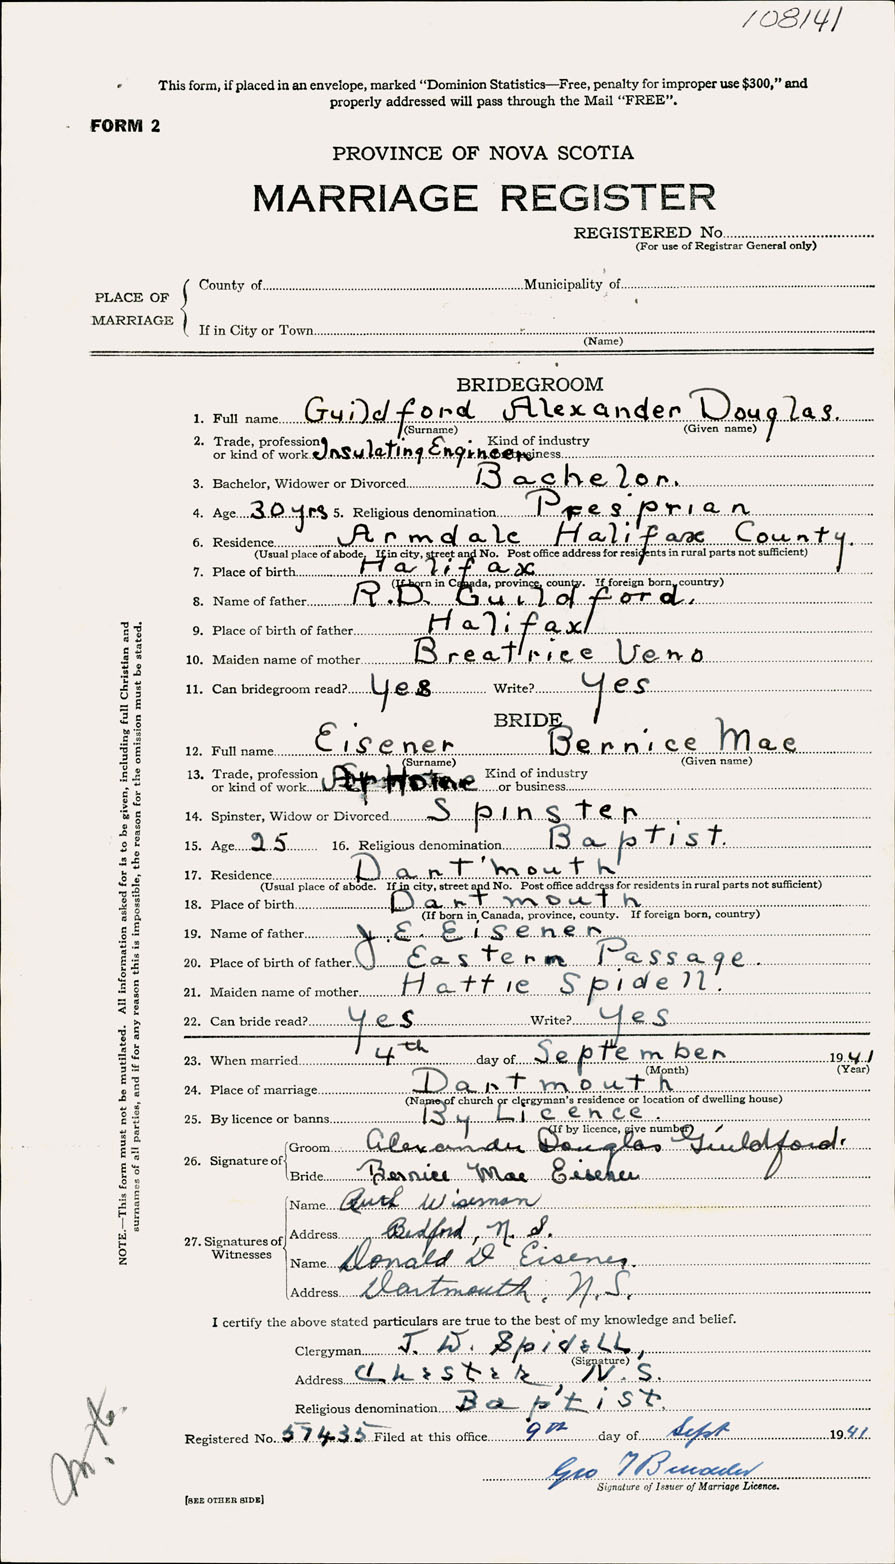 108141
This form, if placed in an envelope, marked "Dominion Statistics—Free, penalty for improper use $300," and
properly addressed will pass through the Mail "FREE".
FORM 2
PROVINCE OF NOVA SCOTIA
MARRIAGE REGISTER
REGISTERED No.
(For use of Registrar General only)
PLACE OF MARRIAGE
County of Municipality of
If in City or Town
(Name)
BRIDEGROOM
1. Full name Guildford Alexander Douglas.
(Surname) (Given name)
2. Trade, profession Kind of industry
or kind of work Insulating Engineer or business
3. Bachelor, Widower or Divorced Bachelor.
4. Age 30 yrs 5. Religious denomination Presprian
6. Residence Armdale Halifax County.
(Usual place of abode. If in city, street and No. Post office address for residents in rural parts not sufficient)
7. Place of birth Halifax
(If born in Canada, province, county. If foreign born, country)
8. Name of father R.D. Guildford.
9. Place of birth of father Halifax
10. Maiden name of mother Breatrice Veno
11. Can bridegroom read? yes Write? yes
BRIDE
12. Full name Eisener Bernice Mae
(Surname) (Given name)
13. Trade, profession Kind of industry
or kind of work At Home or business
14. Spinster, Widow or Divorced Spinster
15. Age 25 16. Religious denomination Baptist.
17. Residence Dart'mouth
(Usual place of abode. If in city, street and No. Post office address for residents in rural parts not sufficient)
18. Place of birth Dartmouth
(If born in Canada, province, county. If foreign born, country)
19. Name of father J.E. Eisener
20. Place of birth of father Eastern Passage.
21. Maiden name of mother Hattie Spidell.
22. Can bride read? yes Write? yes
23. When married 4th day of September 1941
(Month) (Year)
24. Place of marriage Dartmouth
(Name of church or clergyman's residence or location of dwelling house)
25. By licence or banns By Licence.
(If by licence, give number)
26. Signature of
Groom Alexander Douglas Guildford.
Bride Bernice Mae Eisener
27. Signatures of Witnesses
Name Ruth Wiseman
Address Bedford, N. S.
Name Donald D Eisener.
Address Dartmouth, N.S.
I certify the above stated particulars are true to the best of my knowledge and belief.
Clergyman J. W. Spidell,
(Signature)
Address Chester N.S.
Religious denomination Baptist.
Registered No. 57435 Filed at this office 9th day of Sept 1941
Geo T
Signature of Issuer of Marriage Licence.
[SEE OTHER SIDE]
NOTE.—This form must not be mutilated. All information asked for is to be given, including full Christian and
surnames of all parties, and if for any reason this is impossible, the reason for the omission must be stated.